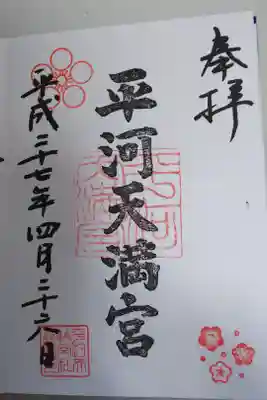 奉拝
平河天満宮
平成二十七年四月二十六日